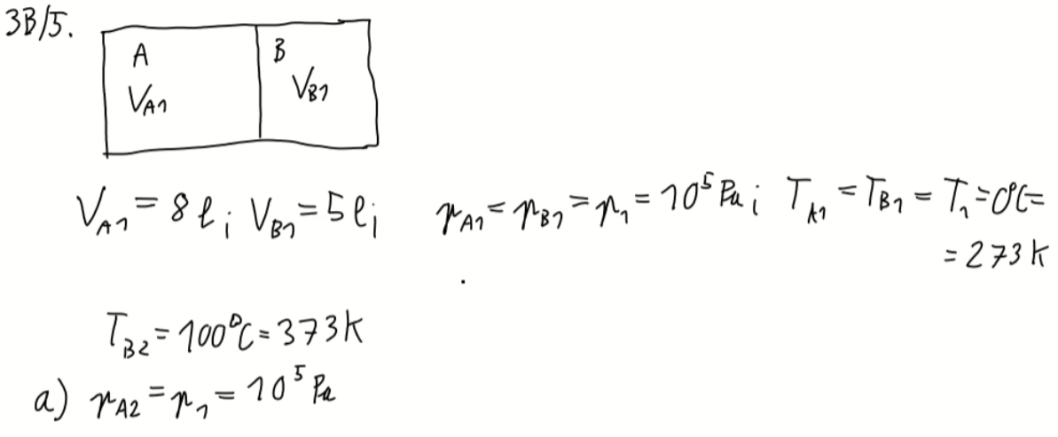 3B/5.
A B
V_A1 V_B1
V_A1 = 8 l; V_B1 = 5 l; p_A1 = p_B1 = p_1 = 10^5 Pa; T_A1 = T_B1 = T_1 = 0°C =
= 273 K
T_B2 = 100°C = 373 K
a) p_A2 = p_1 = 10^5 Pa